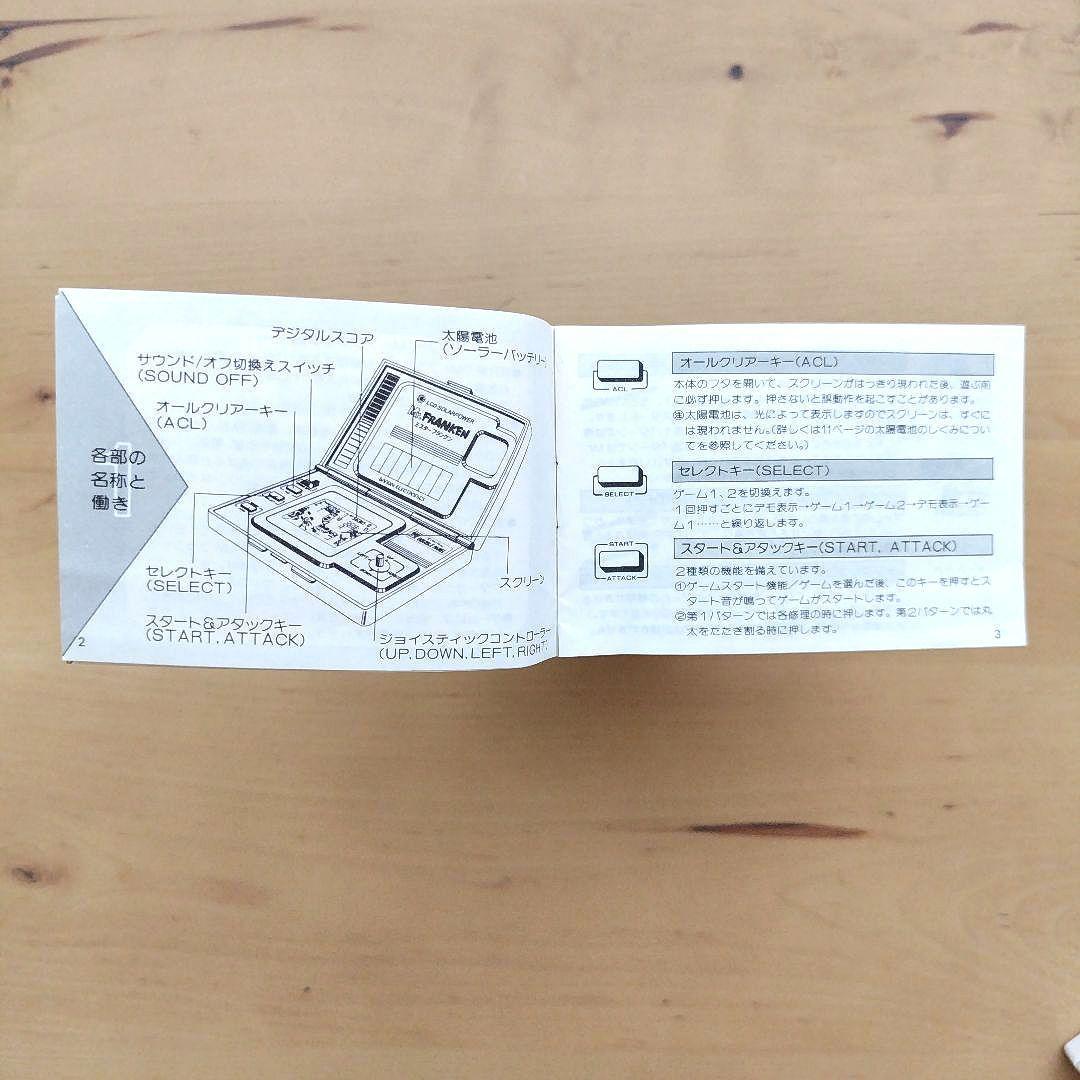 各部の
名称と
働き
デジタルスコア
太陽電池
(ソーラーバッテリー
サウンド/オフ切換えスイッチ
(SOUND OFF)
オールクリアーキー
(ACL)
LCD SOLARPOWER
FRANKEN
ミスターフランケン
BANDAI ELECTRONICS
セレクトキー
(SELECT)
スタート&アタックキー
(START. ATTACK)
スクリーン
ジョイスティックコントローラー
(UP. DOWN. LEFT. RIGHT)
2
ACL
オールクリアーキー(ACL)
本体のフタを開いて、スクリーンがはっきり現われた後、遊ぶ前
に必ず押します。押さないと誤動作を起こすことがあります。
太陽電池は、光によって表示しますのでスクリーンは、すぐに
は現われません。(詳しくは11ページの太陽電池のしくみについ
てを参照してください。)
SELECT
セレクトキー(SELECT)
ゲーム1、2を切換えます。
1回押すごとにデモ表示→ゲーム1→ゲーム2→デモ表示→ゲー
ム1……と繰り返します。
START
ATTACK
スタート&アタックキー(START. ATTACK)
2種類の機能を備えています。
①ゲームスタート機能/ゲームを選んだ後、このキーを押すとス
タート音が鳴ってゲームがスタートします。
②第1パターンでは各修理の時に押します。第2パターンでは丸
太をたたき割る時に押します。
3